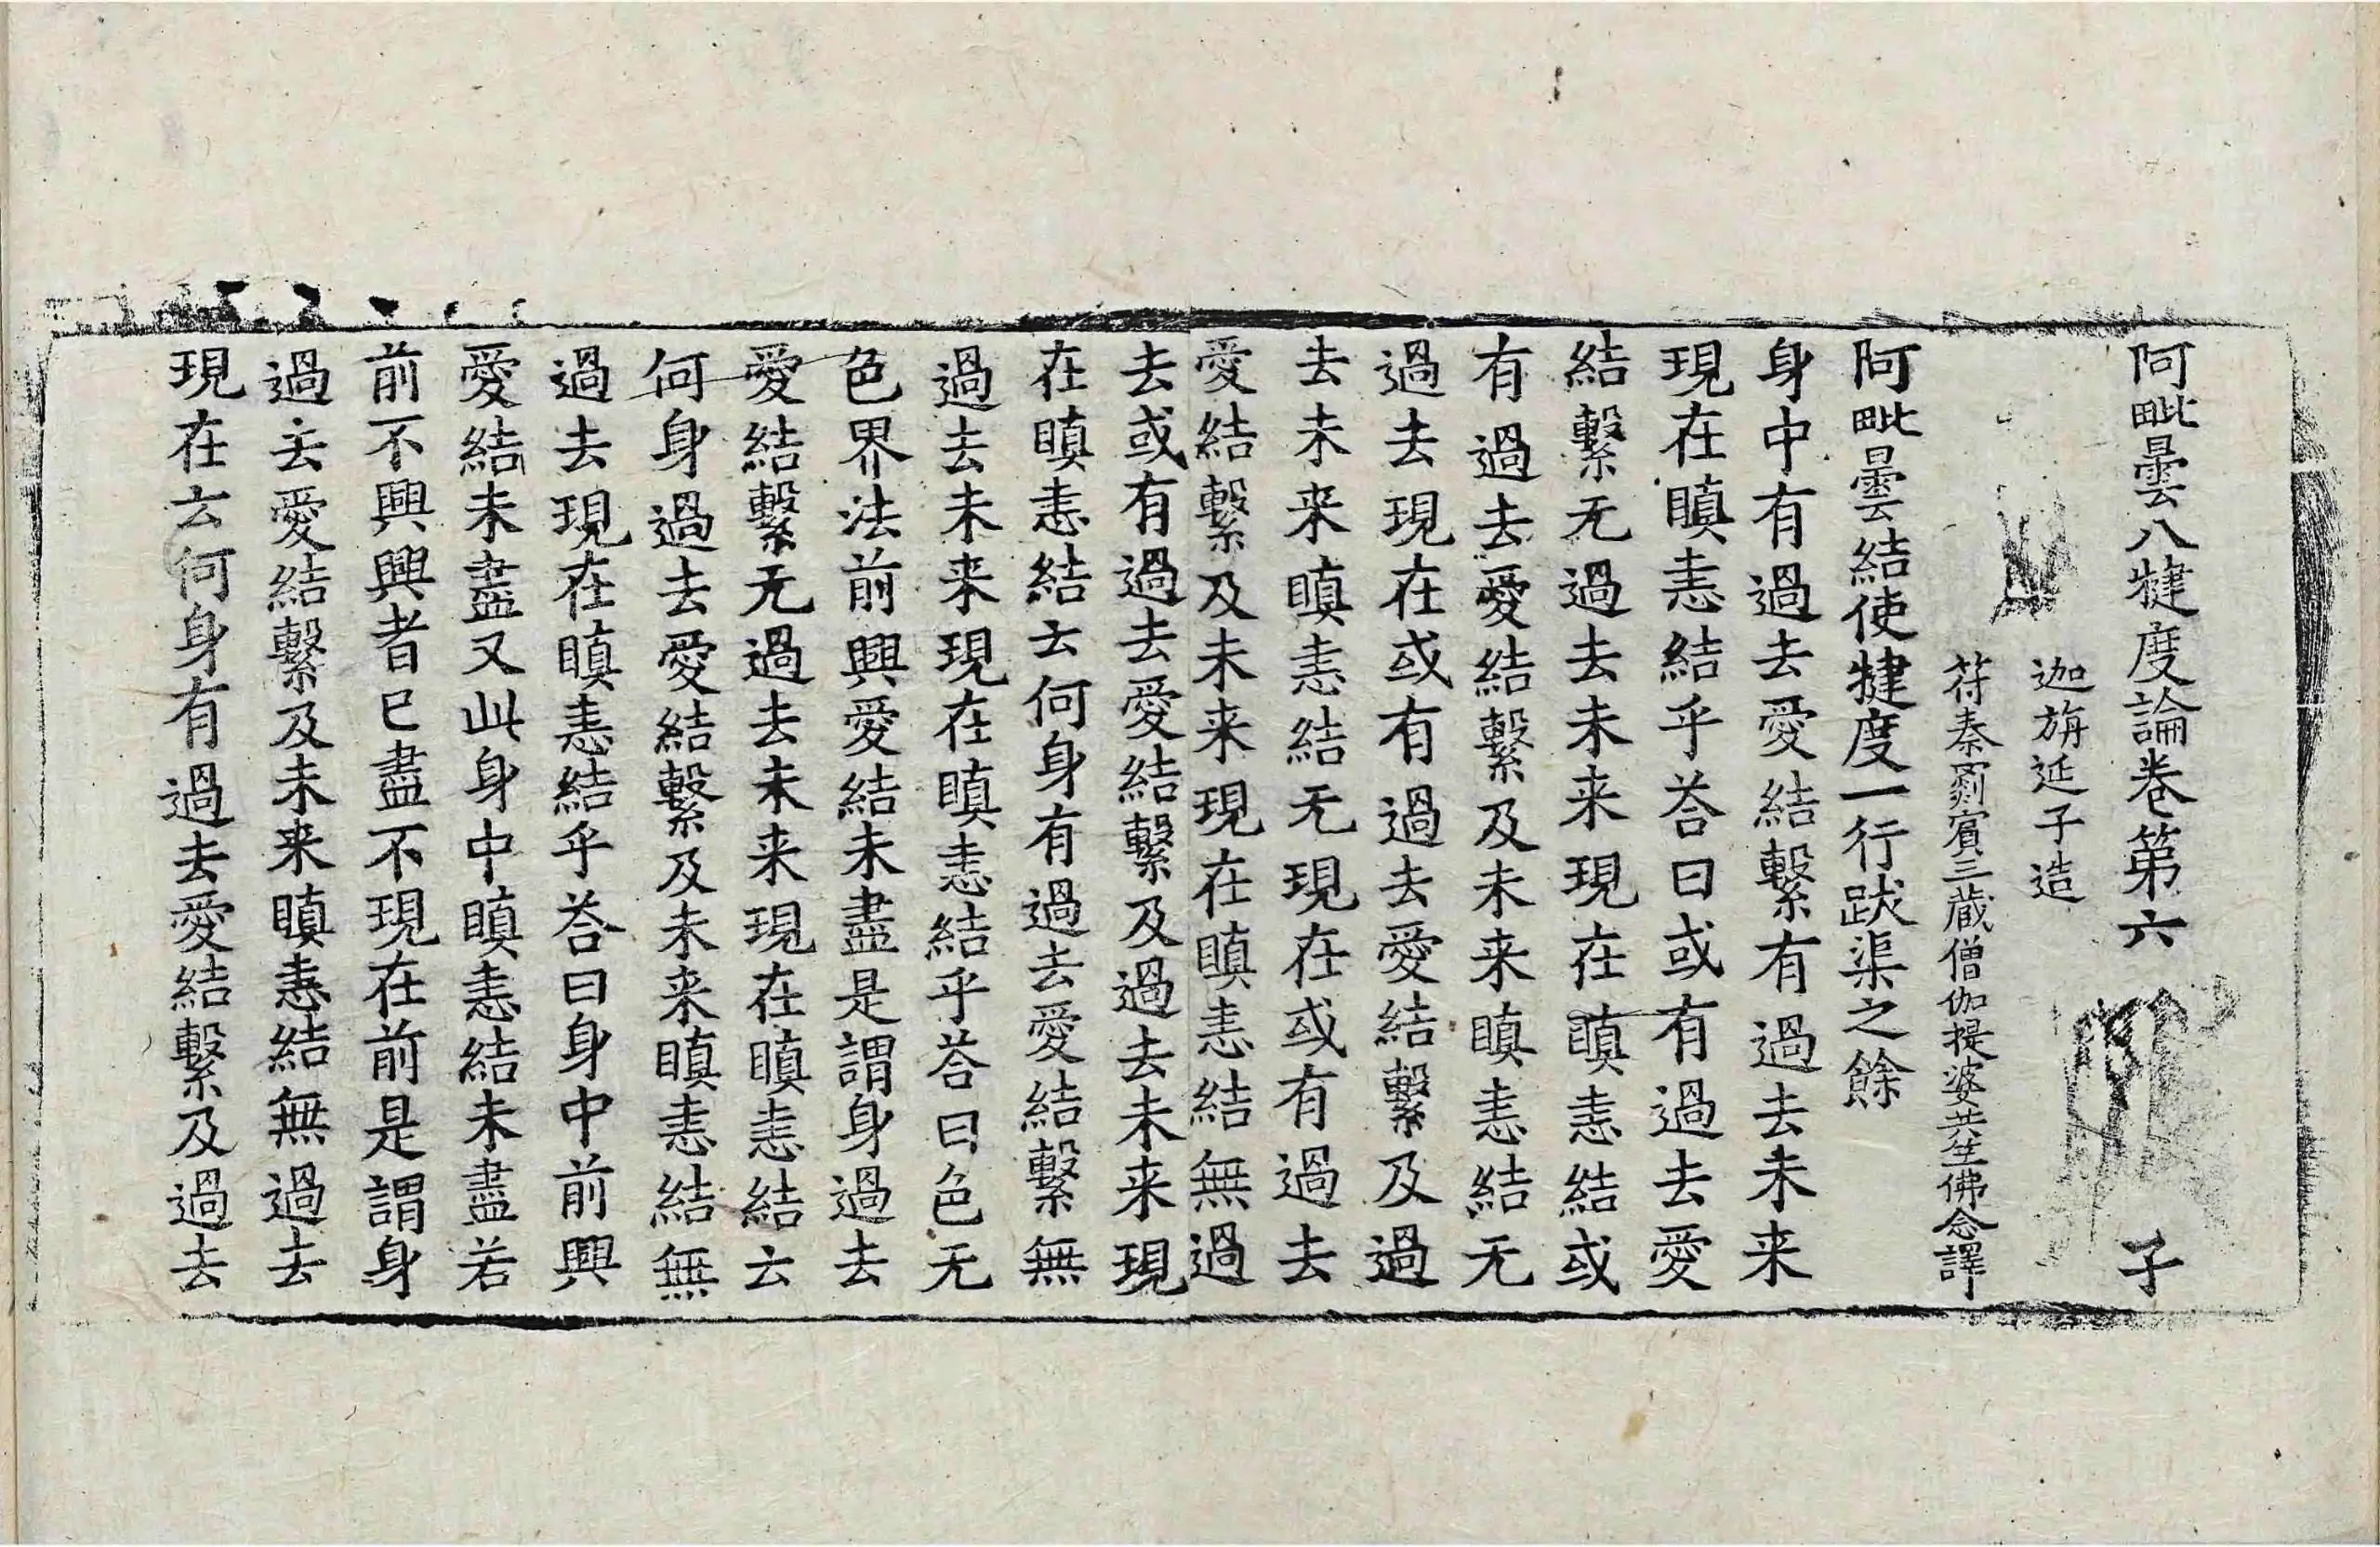 阿毗曇八犍度論卷第六　子
迦旃延子造
符秦罽賓三藏僧伽提婆共竺佛念譯
阿毗曇結使犍度一行跋渠之餘
身中有過去愛結繫有過去未来
現在瞋恚結乎荅曰或有過去愛
結繫无過去未来現在瞋恚結或
有過去愛結繫及未来瞋恚結无
過去現在或有過去愛結繫及過
去未来瞋恚結无現在或有過去
愛結繫及未来現在瞋恚結無過
去或有過去愛結繫及過去未来現
在瞋恚結云何身有過去愛結繫無
過去未来現在瞋恚結乎荅曰色无
色界法前興愛結未盡是謂身過去
愛結繫无過去未来現在瞋恚結云
何身過去愛結繫及未来瞋恚結無
過去現在瞋恚結乎荅曰身中前興
愛結未盡又此身中瞋恚結未盡若
前不興興者已盡不現在前是謂身
過去愛結繫及未来瞋恚結無過去
現在云何身有過去愛結繫及過去